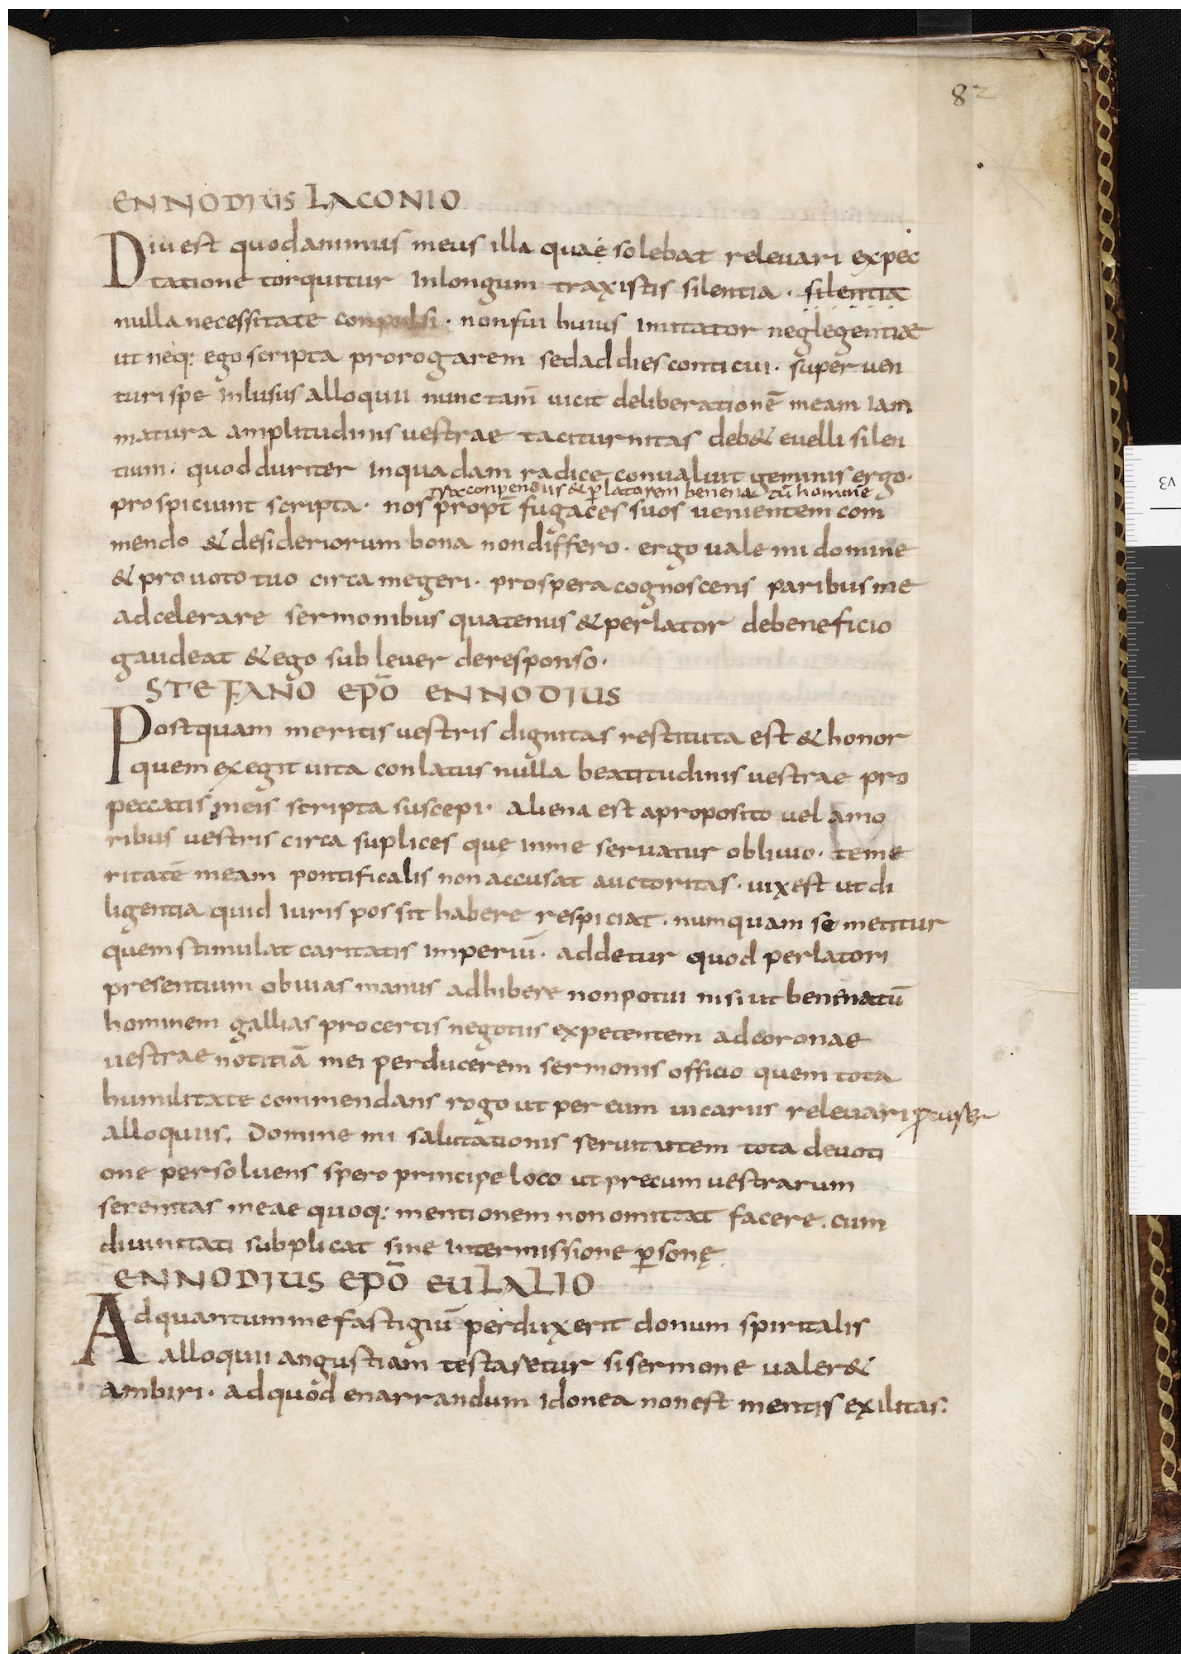 82
ENNODIUS LACONIO
Diu est quod animus meus illa quae solebat relevari expec
tatione torquitur Inlongum traxistis silentia · silentia
nulla necessitate conpulsi · non fui huius imitator neglegentiae
ut neq: ego scripta prorogarem sed ad dies conticui · super ven
turi spe inlusus alloquii nunc tam̄ vicit deliberationē meam Iam
matura amplitudinis vestrae taciturnitas deb& evelli silen
tium · quod duriter Inquadam radice convaluit geminis ergo ·
conpendiis & p̱latorem
prospiciunt scripta · nos propt̄ fugaces suos venientem com
mendo & desideriorum bona non differo · ergo vale mi domine
& pro voto tuo circa me geri · prospera cognoscens paribus me
adcelerare sermonibus quatenus & perlator de beneficio
gaudeat & ego sub lever de responso ·
STEFANO EPŌ ENNODIUS
Postquam meritis vestris dignitas restituta est & honor
quem exegit vita conlatus nulla beatitudinis vestrae pro
peccatis meis scripta suscepi · aliena est a proposito vel amo
ribus vestris circa suplices que in me servatur oblivio · teme
ritatē meam pontificalis non accusat auctoritas · vix est ut di
ligentia quid iuris possit habere respiciat · numquam se metitur
quem stimulat caritatis imperiū · addetur quod perlatori
presentium obvias manus adhibere non potui nisi ut beninatū
hominem gallias pro certis negotiis expetentem ad coronae
vestrae notitiā mei perducerem sermonis officio quem tota
humilitate commendans rogo ut per eum vicariis relevari
alloquiis. Domine mi salutationis servitutem tota devoti
one persolvens spero principe loco ut precum vestrarum
serenitas meae quoq: mentionem non omittat facere · cum
divinitati subplicat sine intermissione p̱sonę
ENNODIUS EPŌ EULALIO
Ad quantum me fastigiū perduxerit donum spiritalis
alloquii angustiam testaretur si sermone valer&
ambiri · ad quod enarrandum idonea non est mentis exilitas.